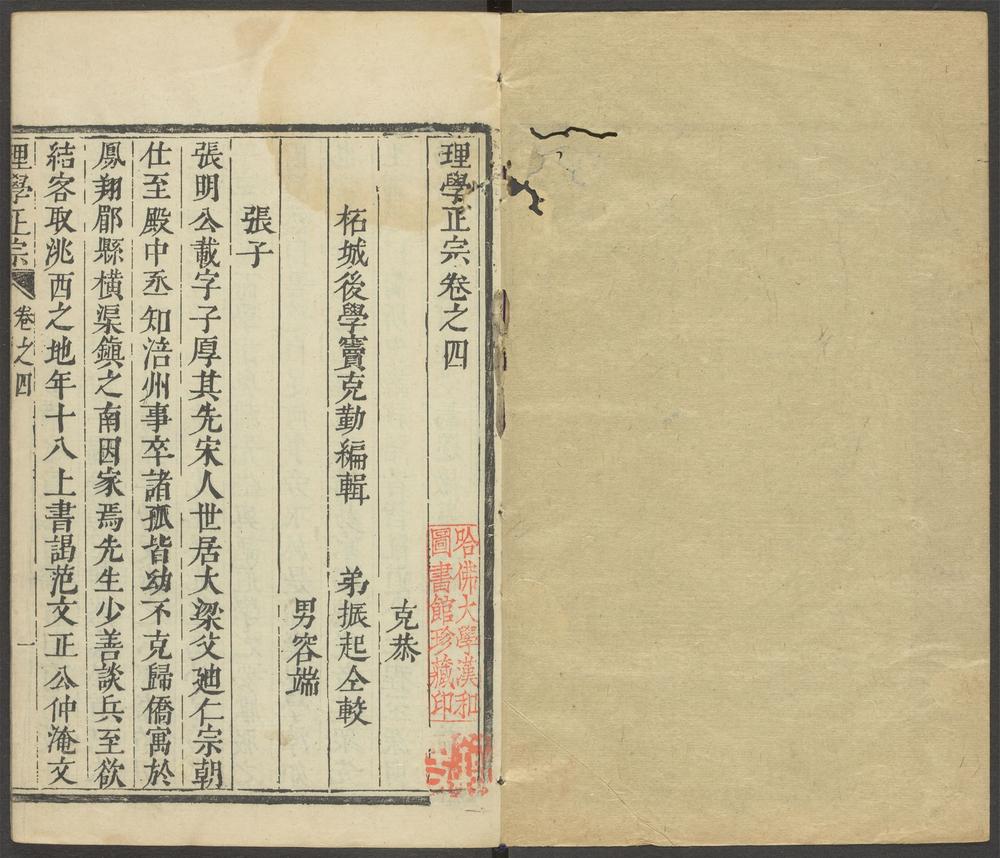 理學正宗卷之四
克恭
柘城後學竇克勤編輯 弟振起仝較
男容端
張子
張明公載字子厚其先宋人世居大梁父廸仁宗朝
仕至殿中丞知涪州事卒諸孤皆幼不克歸僑寓於
鳳翔郿縣橫渠鎮之南因家焉先生少善談兵至欲
結客取洮西之地年十八上書謁范文正公仲淹文
理學正宗 卷之四 一
哈佛大學漢和
圖書館珍藏印